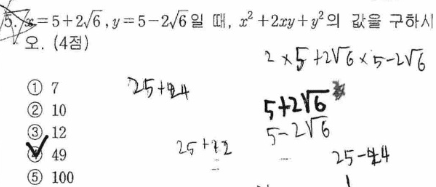 5. x=5+2√6, y=5-2√6일 때, x²+2xy+y²의 값을 구하시
오. (4점)
2×5+2√6×5-2√6
① 7
25+24
② 10
5+2√6
③ 12
5-2√6
④ 49
25+
25-
⑤ 100